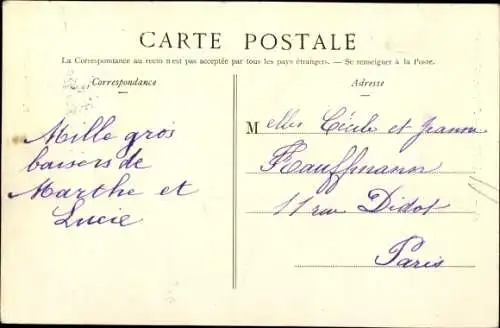 CARTE POSTALE
La Correspondance au recto n'est pas acceptée par tous les pays étrangers. — Se renseigner à la Poste.
Correspondance
Adresse
Mille gros
baisers de
Marthe et
Lucie
Melles Cécile et Jeanne
Kauffmann
11 rue Didot
Paris